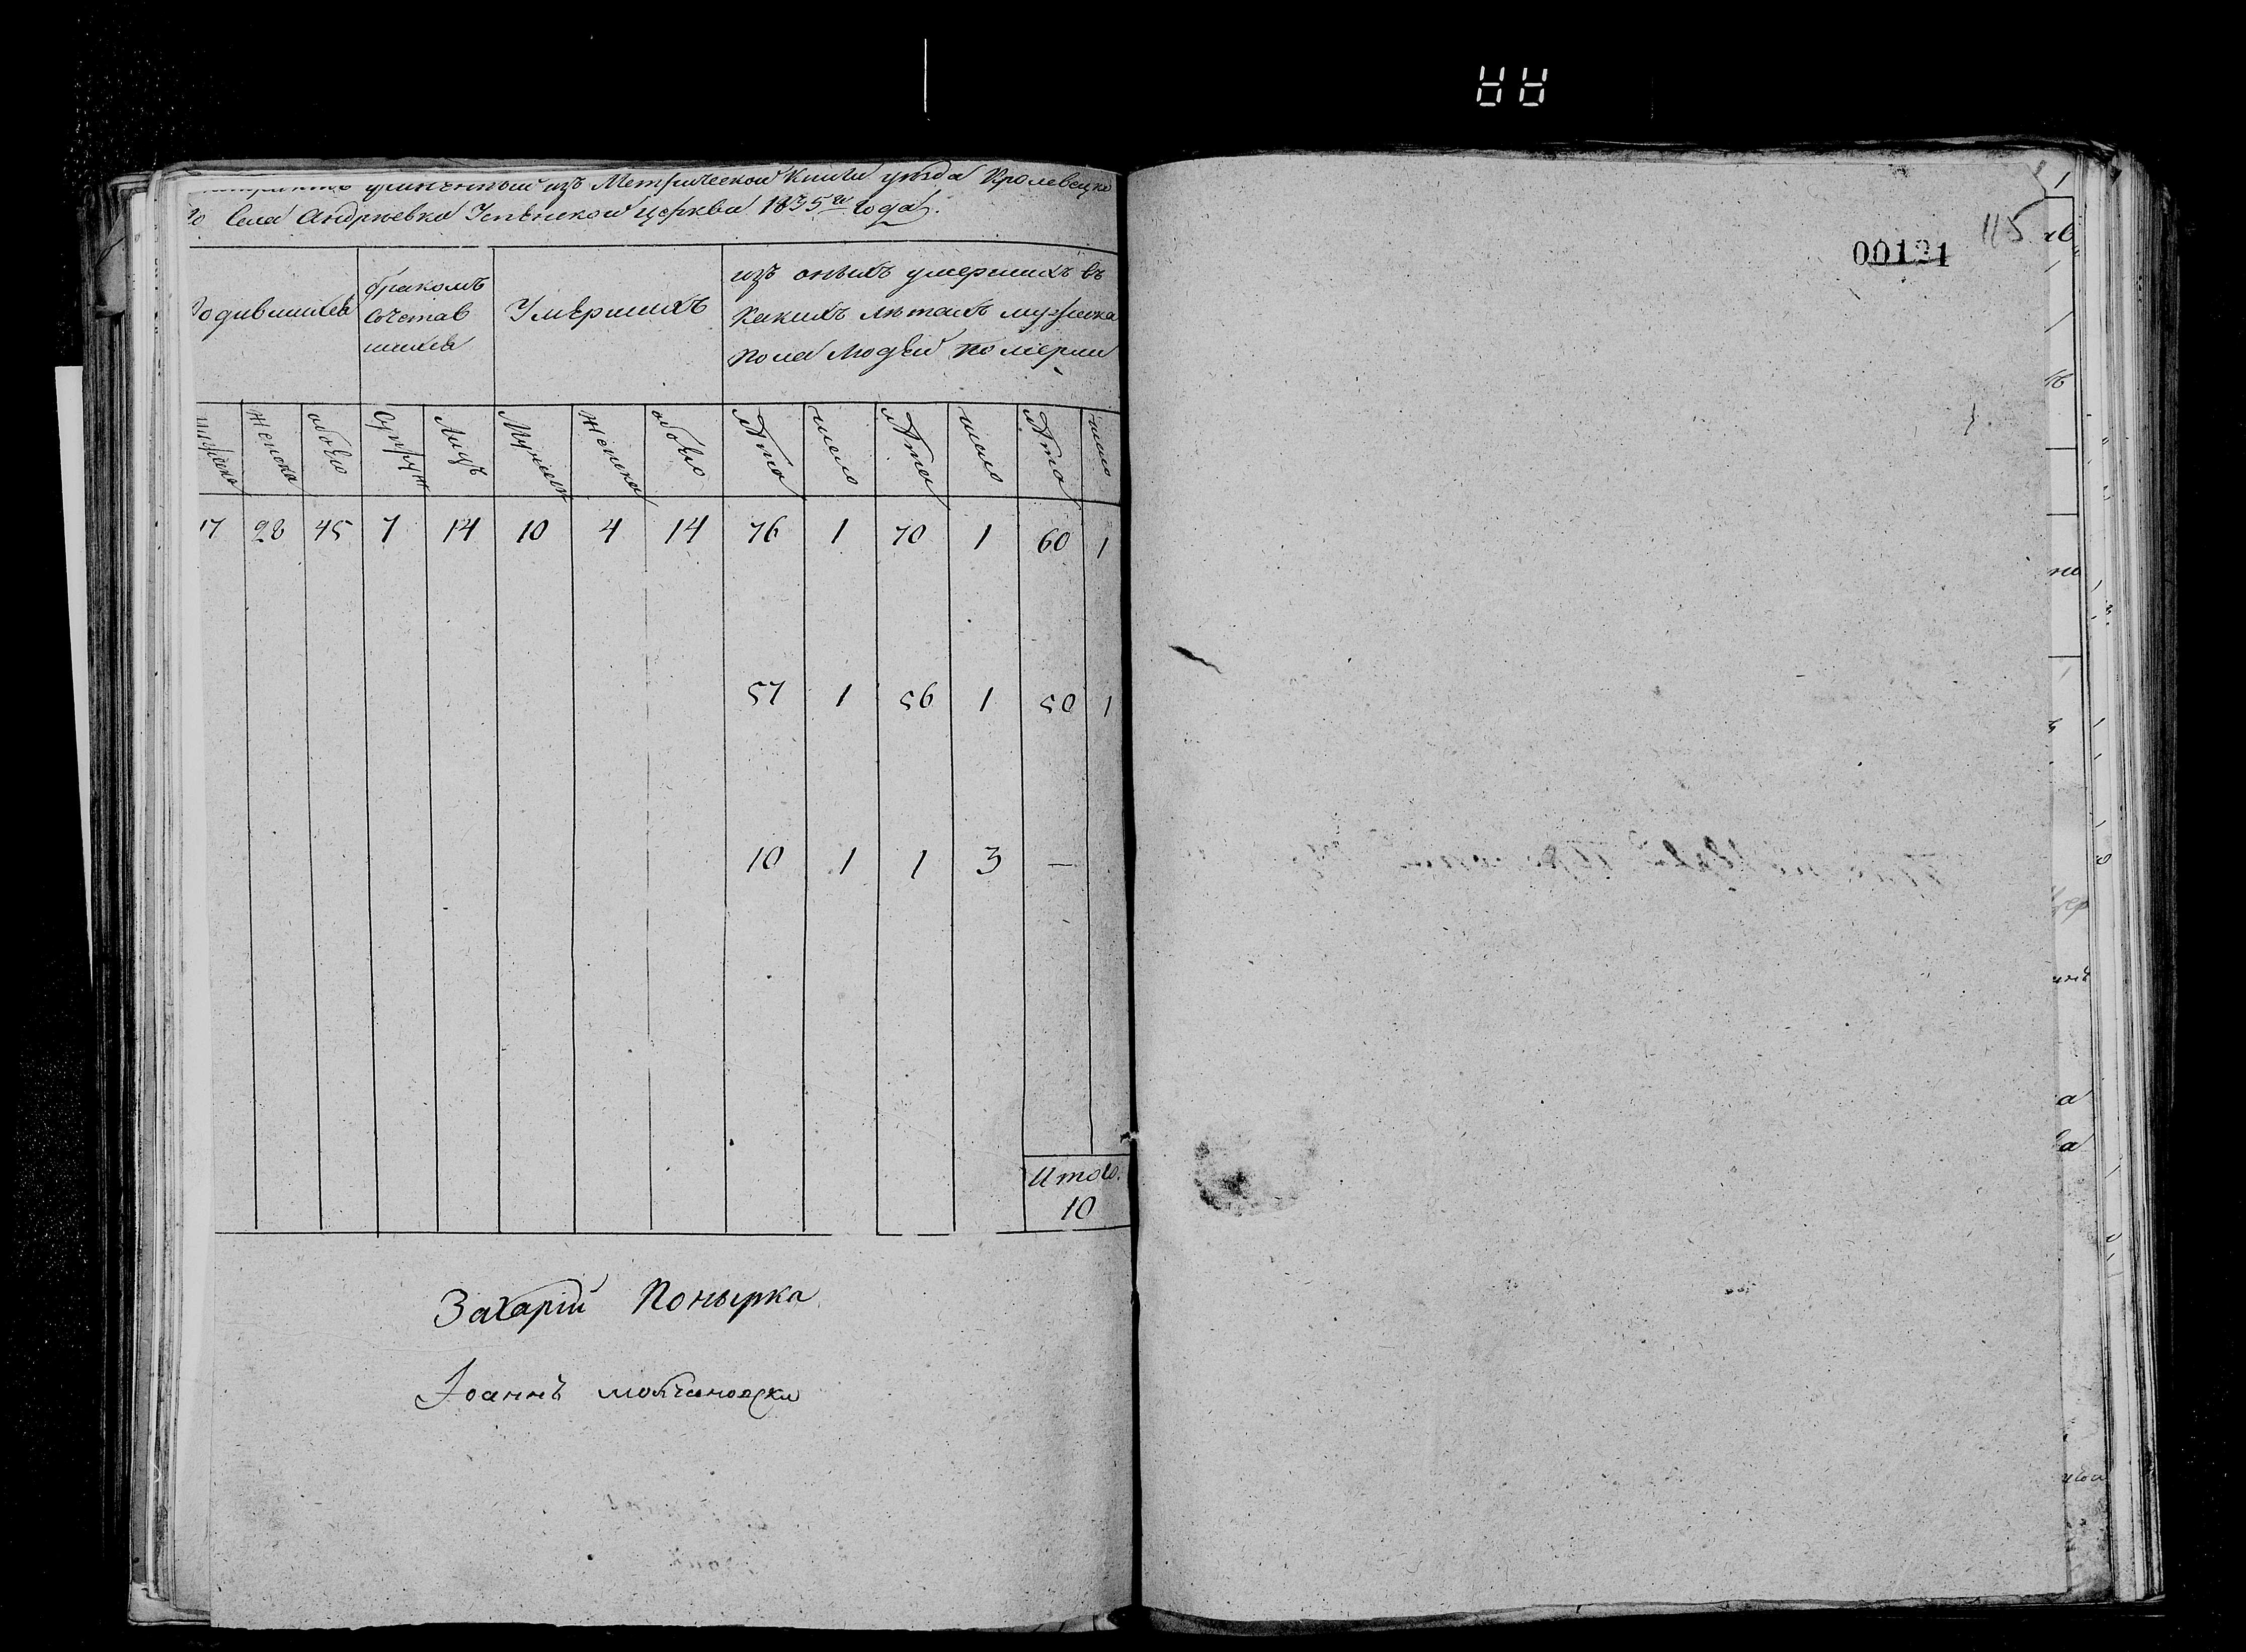 учиненный изъ Метрической Книги уѣзда Кролевецко
го Села Андрѣевки Успѣнской церкви 1835го Года.
Родившихся
бракомъ
Сочетав
шихся
Умѣршихъ
изъ оныхъ умершихъ въ
какихъ лѣтахъ мужеска
пола людѣй померли
мужеска женска обоѣго Супруж Лицъ Мужеск женска обоѣго Лѣта число Лѣта число Лѣта число
17 28 45 7 14 10 4 14 76 1 70 1 60 1
57 1 56 1 50 1
10 1 1 3 —
Итого.
10
Захарій Понырка
Іоаннъ Молчановски
115
00121